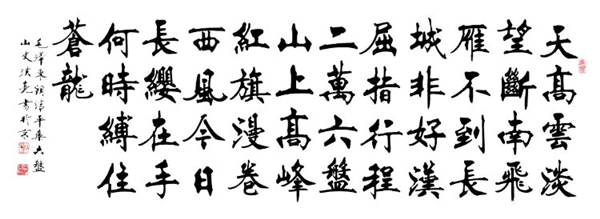 天高雲淡
望斷南飛
雁不到長
城非好漢
屈指行程
二萬六盤
山上高峰
紅旗漫卷
西風今日
長纓在手
何時縛住
蒼龍
毛澤東詞清平樂六盤
山 書於京